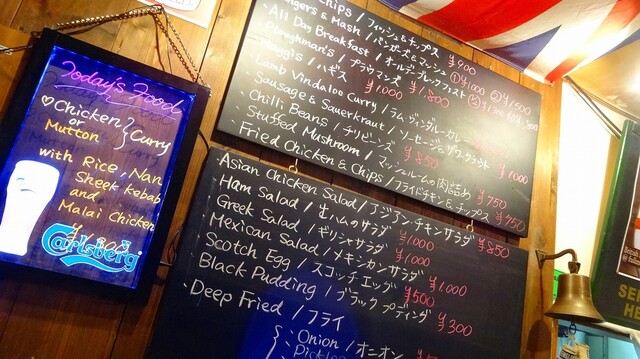 Today's Food
♡Chicken
or
Mutton
} Curry
with Rice, Nan
Sheek kebab
and
Malai Chicken
Carlsberg
Chips / フィッシュ&チップス ¥900
& Mash / バンガーズ&マッシュ ①¥1000 ②¥1500
・All Day Breakfast / オールデーブレックファスト
Ploughman's / プラウマンズ ¥1,800
Haggis / ハギス ¥1000
Lamb Vindaloo Curry / ラム
・Sausage & Sauerkraut / ソーセージ&ザワークラウト ¥1000
・Chilli Beans / チリビーンズ ¥850
・Stuffed Mushroom / マッシュルームの肉詰め ¥750
・Fried Chicken & Chips / フライドチキン&チップス ¥950
・Asian Chicken Salad / アジアンチキンサラダ ¥850
・Ham Salad / 生ハムのサラダ ¥1000
・Greek Salad / ギリシャサラダ ¥1000
・Mexican Salad / メキシカンサラダ ¥1000
・Scotch Egg / スコッチエッグ ¥500
・Black Pudding / ブラックプディング ¥300
・Deep Fried / フライ
Onion / オニオン